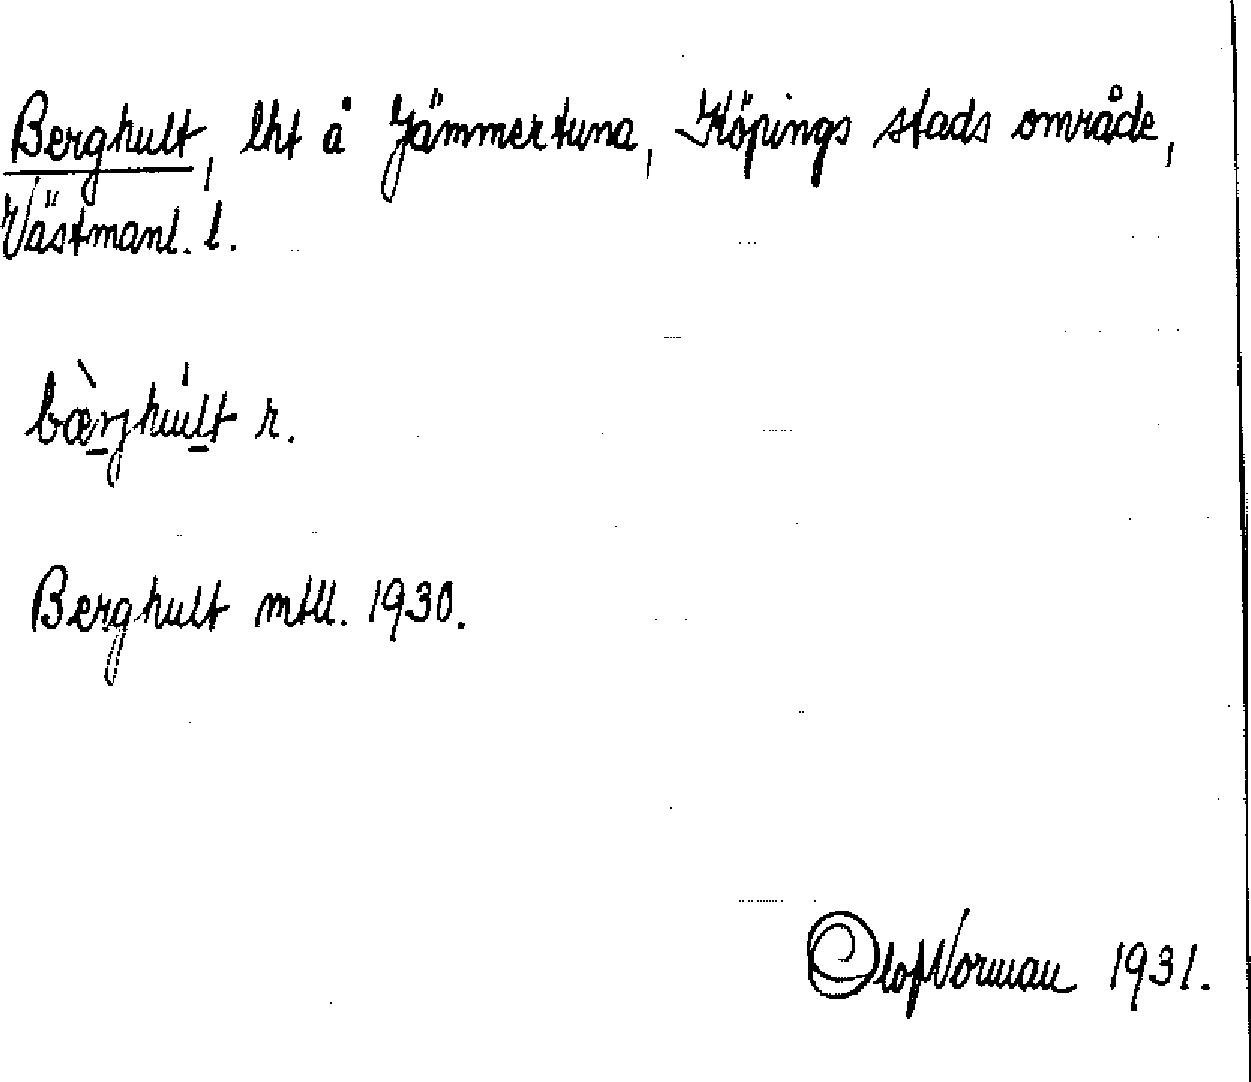 Berghult, lht å Jämmertuna, Köpings stads område,
Västmanl. l.
bæ̀rjhúlt r.
Berghult mtll. 1930.
Olof Norman 1931.